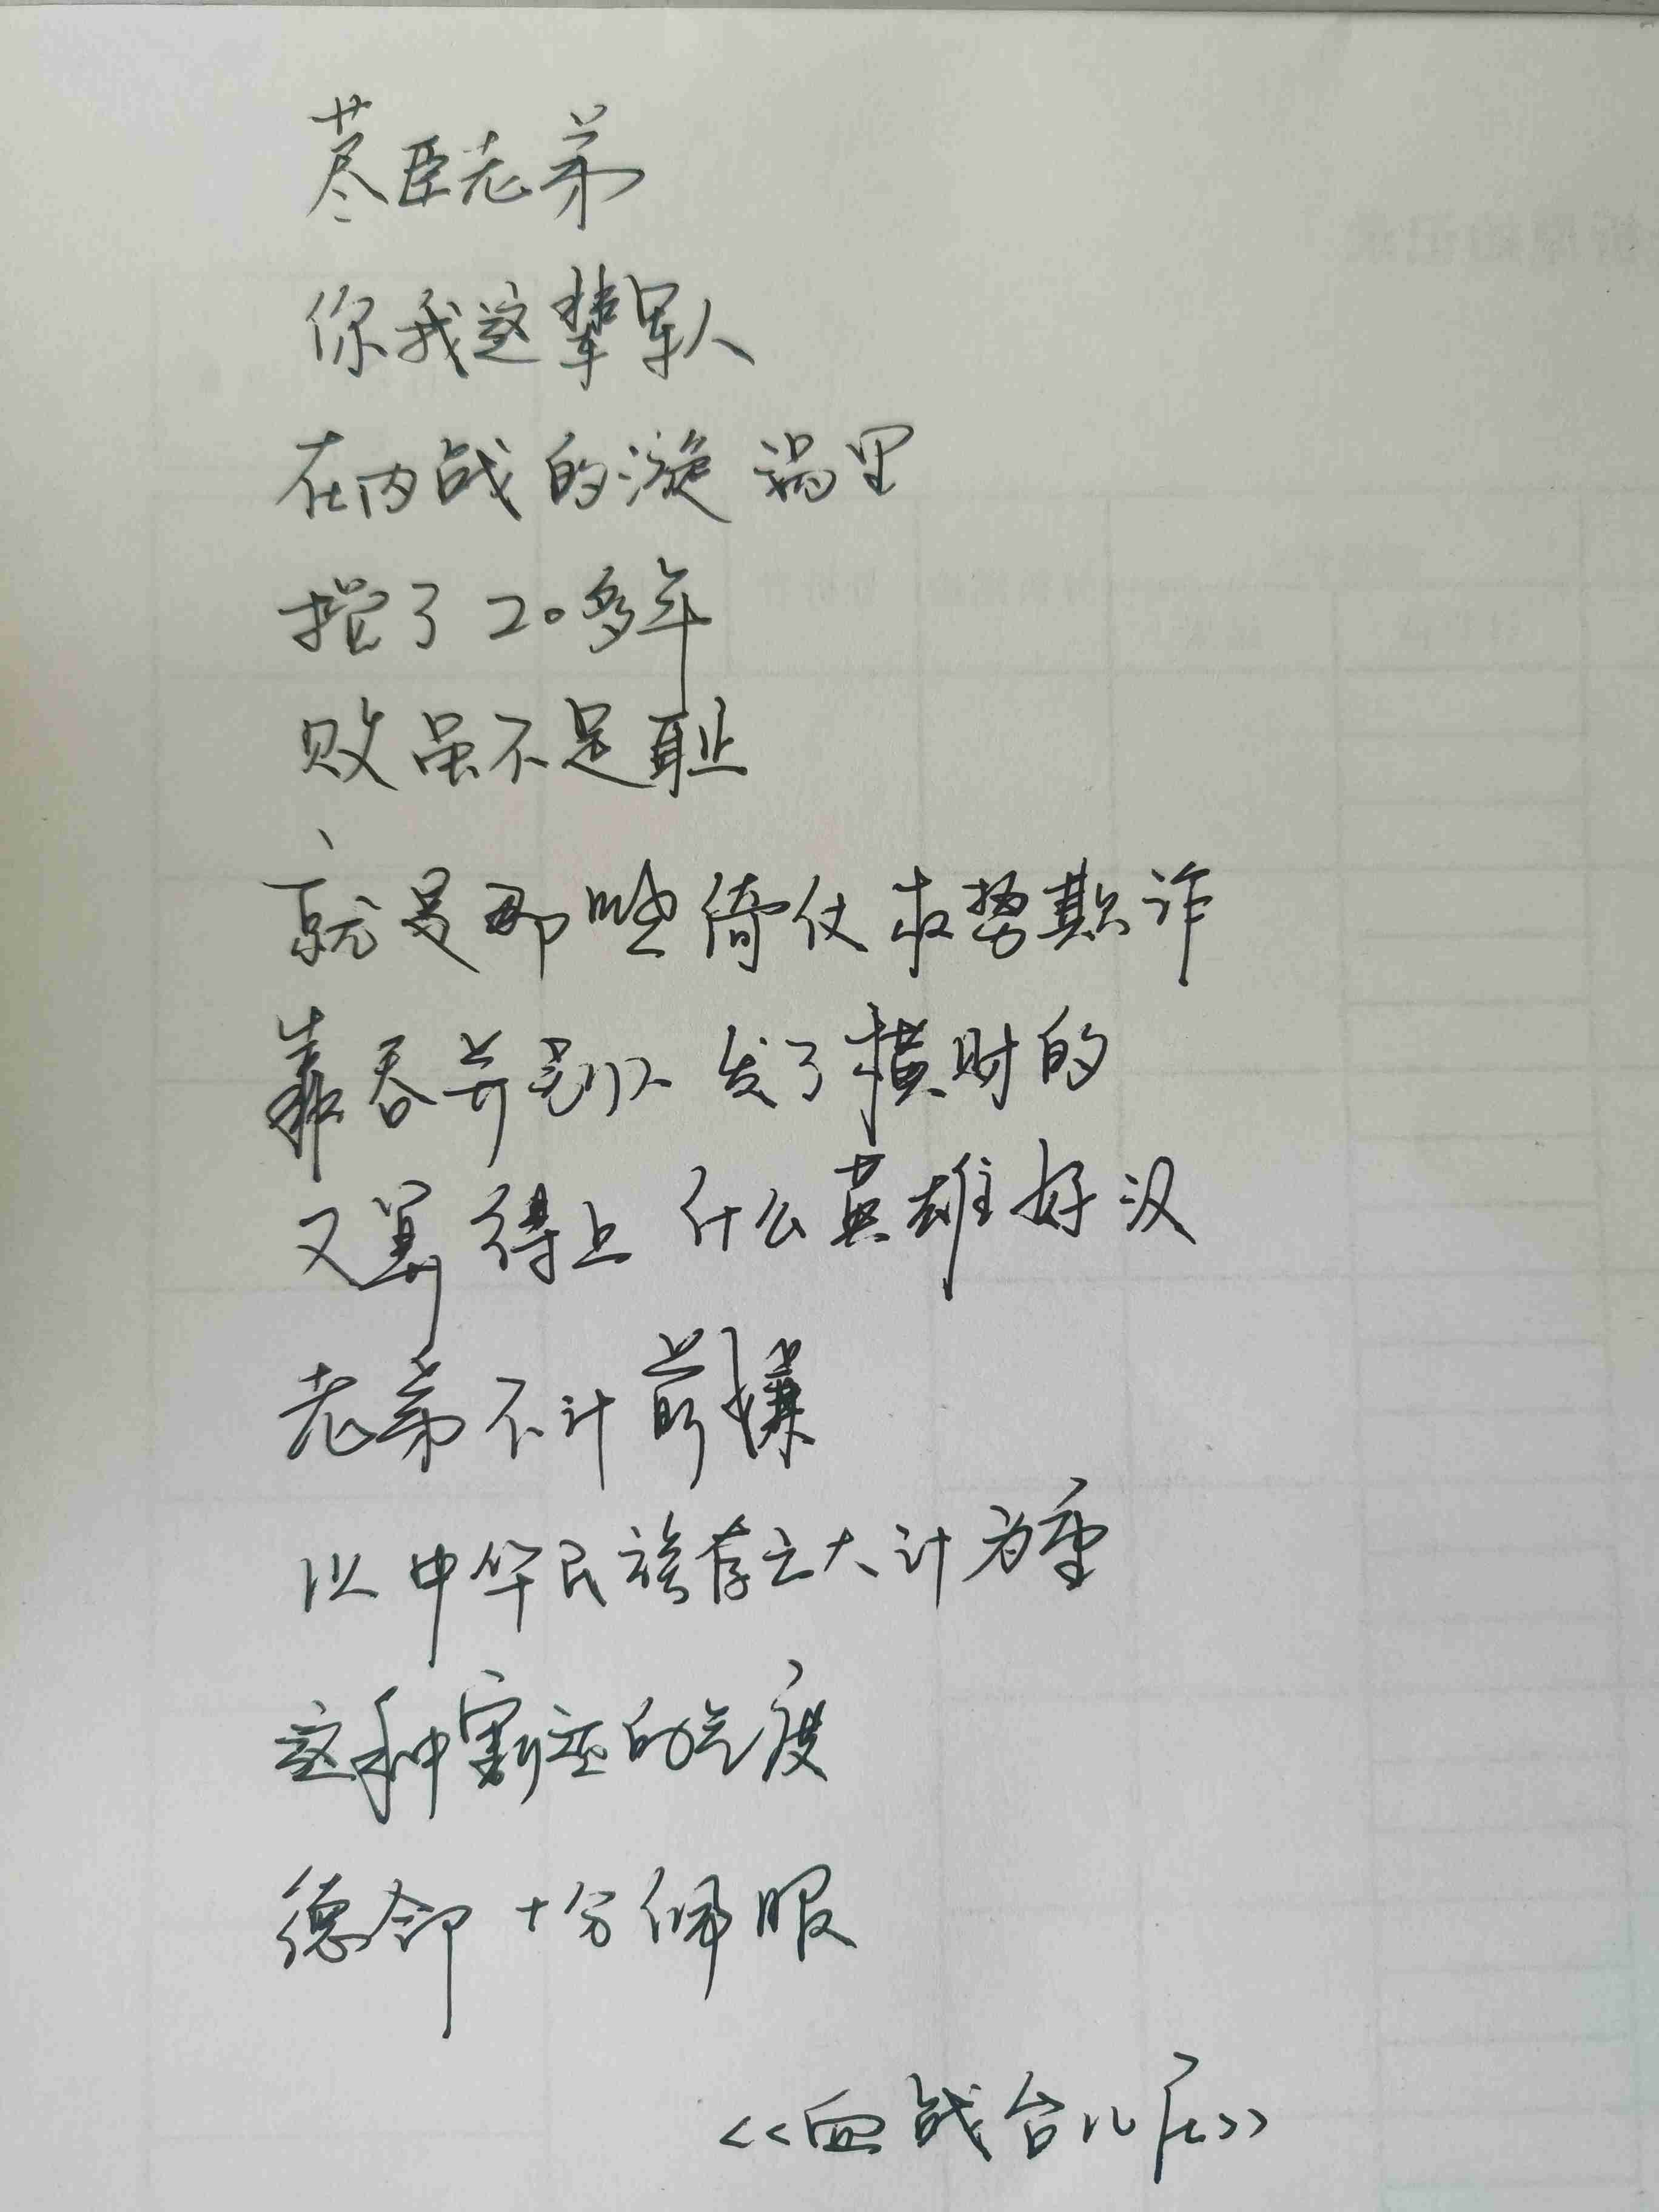 荩臣老弟
你我这辈军人
在内战的漩涡里
搅了20多年
败虽不足耻
就是那些倚仗权势欺诈
靠吞并别人发了横财的
又算得上什么英雄好汉
老弟不计前嫌
以中华民族存亡大计为重
这种豁达的气度
德邻十分佩服
<<血战台儿庄>>